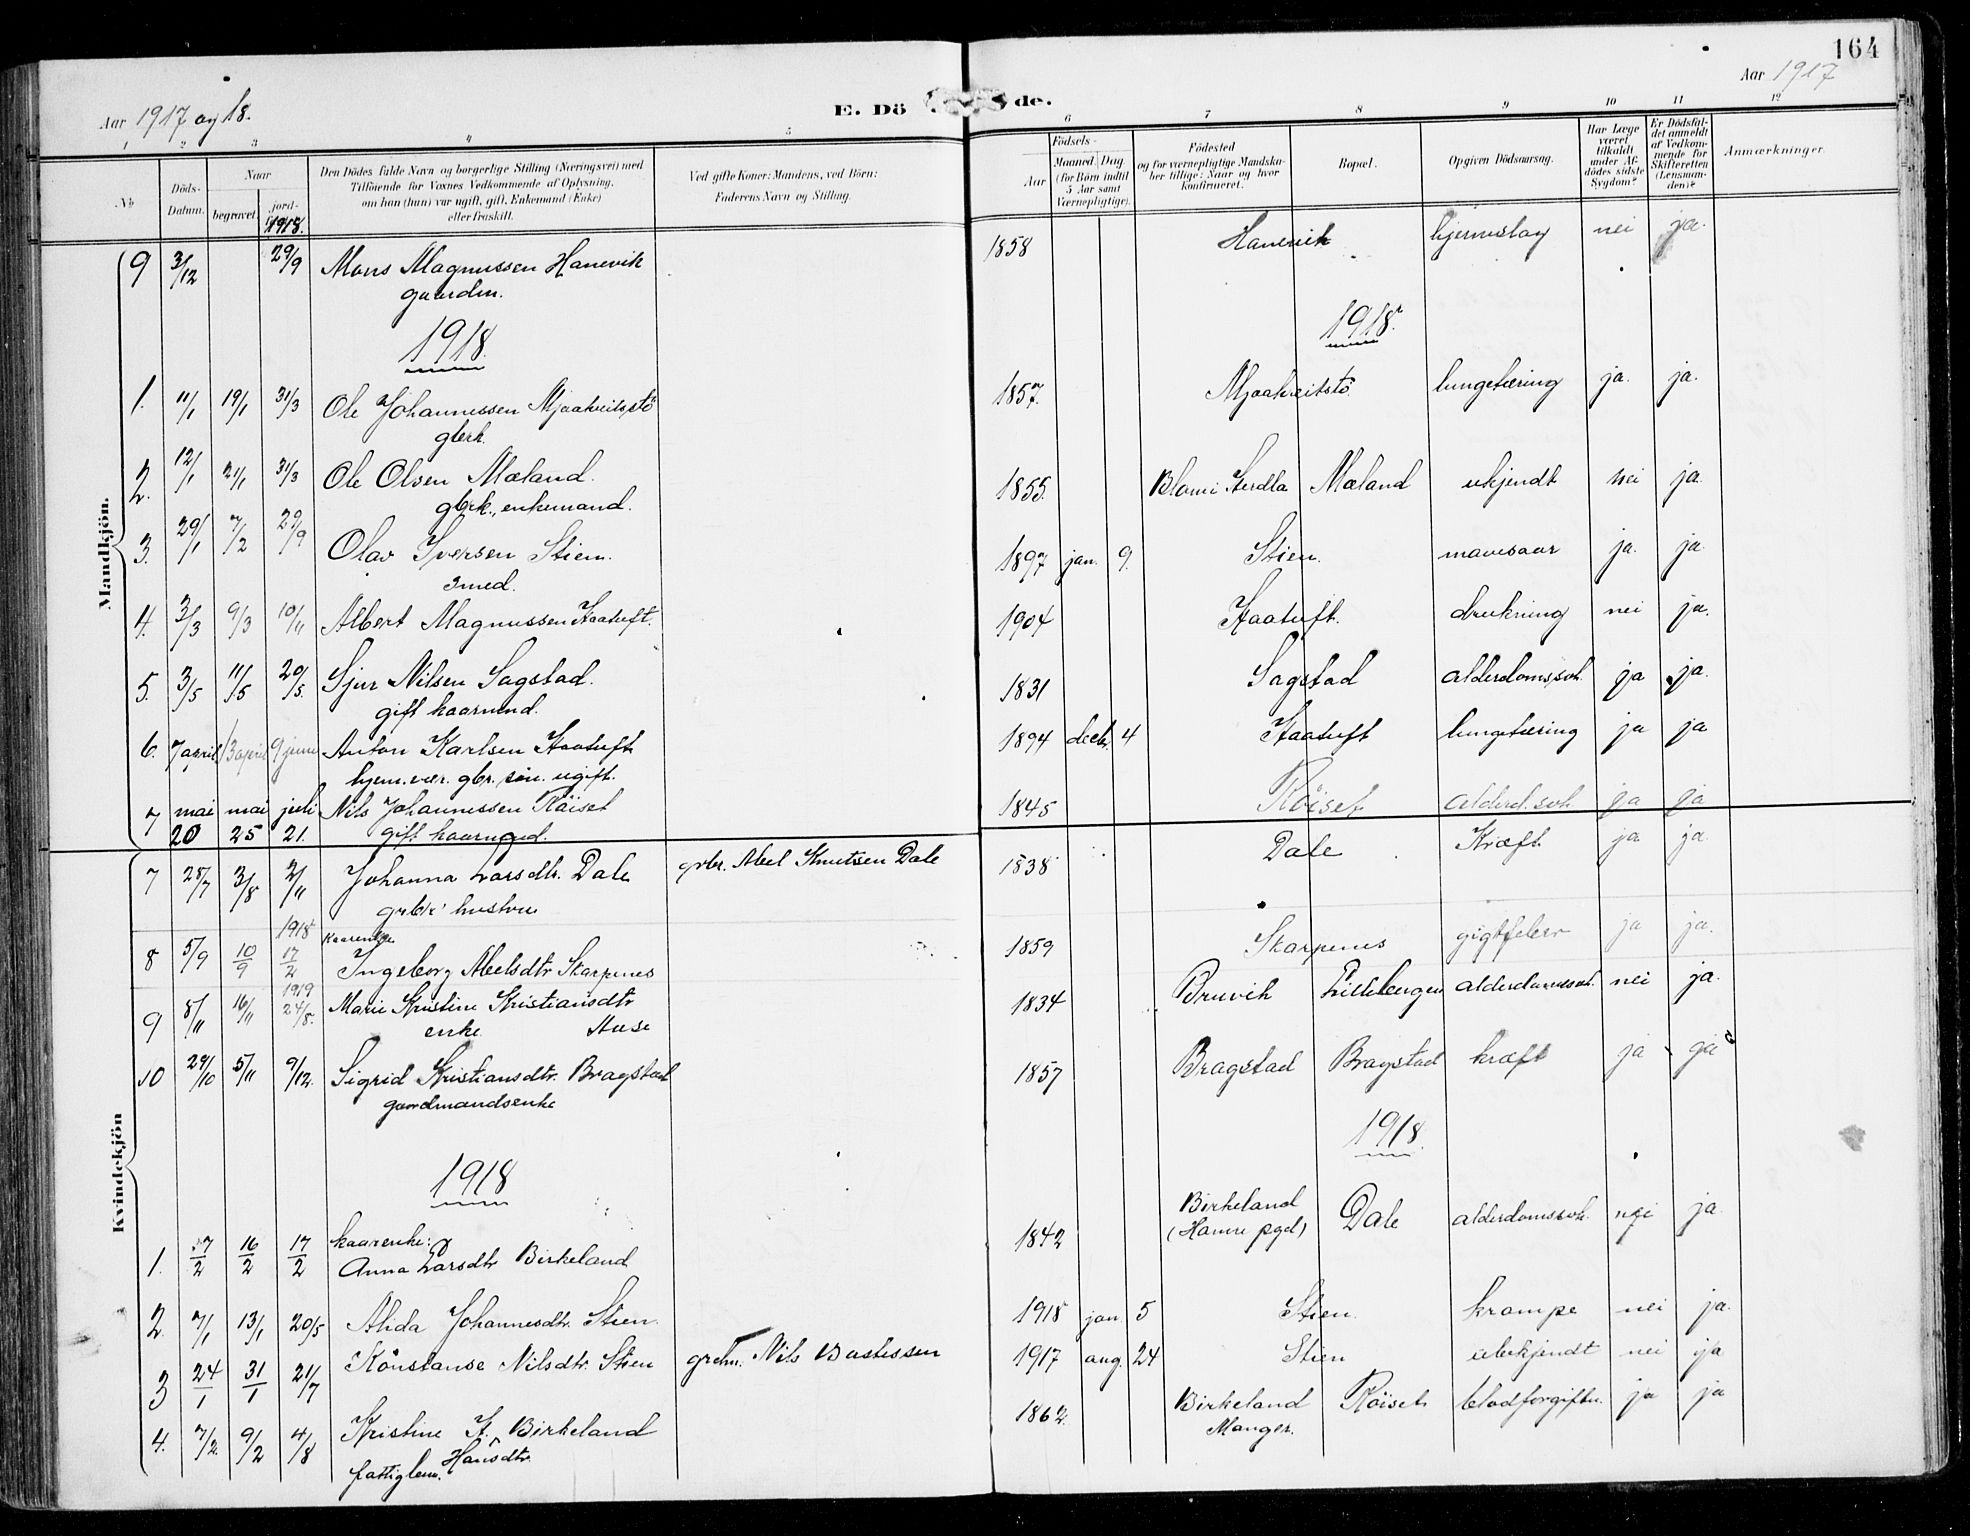 164
Aar 1917 og 18.
E. Dö de.
Aar 1917
1 2 3 4 5 6 7 8 9 10 11 12
No
Döds-Datum.
Naar
begravet.
jord-
1918.
Den Dödes fulde Navn og borgerlige Stilling (Næringsvei) med
Tilföiende for Voxnes Vedkommende af Oplysning,
om han (hun) var ugift, gift, Enkemand (Enke)
eller fraskilt.
Ved gifte Koner: Mandens, ved Börn:
Faderens Navn og Stilling.
Födsels-
Aar
Maaned. Dag.
(for Börn indtil
5 Aar samt
Værnepligtige).
Födested
og for værnepligtige Mandskaber
tillige: Naar og hvor
konfirmeret.
Bopæl.
Opgiven Dödsaarsag.
Har Læge
været
tilkaldt
under Afdödes
sidste
Sygdom?
Er Dödsfaldet
anmeldt
af Vedkommende
for
Skifteretten
(Lensmanden)?
Anmærkninger.
Mandkjön.
9 3/12 29/9 Mons Magnussen Hanevik 1858 Hanevik hjerneslag nei ja.
gaardm.
1918. 1918.
1. 11/1 19/1 31/3 Ole Johannessen Mjaatveitstö 1857. Mjaatveitstö. lungetæring ja. ja.
gbrk.
2. 12/1 21/1 31/3 Ole Olsen Mæland. 1855. Blomö Herdla Mæland ukjendt nei ja.
gbrk., enkemand.
3. 29/1 7/2 29/9 Olav Iversen Stien. 1897 jan. 9. Stien. mavesaar ja. ja.
smed.
4. 3/3 9/3 10/11 Albert Magnussen Haatuft. 1904 Haatuft. drukning nei ja.
5. 3/5 11/5 20/5. Sjur Nilsen Sagstad. 1831 Sagstad alderdomssvk. ja ja.
gift kaarmand.
6. 7 april 13 april 9 juni Anton Karlsen Haatuft 1894 decbr. 4 Haatuft lungetæring ja ja
hjem.vær. gbr. sön. ugift.
7 mai 20 mai 25 juli 21. Nils Johannessen Röiset 1845 Röiset alderd.svk. ja ja
gift kaarmand.
Kvindekjön
7 28/7 3/8 2/11 Johanna Larsdtr. Dale grbr. Abel Knutsen Dale 1838 Dale Kræft ja ja
grbr's hustru
1918 kaarenke
8 5/9 10/9 17/2 Ingeborg Abelsdtr Skarpenes 1859 Skarpenes gigtfeber ja ja.
1919
9 8/11 16/11 24/8. Marie Kristine Kristiansdtr 1834 Bruvik Lillebergen alderdomssvk. nei ja.
enke. Huse
10 29/10 5/11 9/12. Sigrid Kristiansdtr. Bragstad 1857 Bragstad Bragstad kræft ja ja
gaardmandsenke
1918 1918.
kaarenke:
1. 7/2 16/2 17/2 Anna Larsdtr Birkeland 1842 Birkeland Dale alderdomssvk. nei ja.
(Hamre pgd)
2. 7/1 13/1 20/5 Alida Johannesdtr. Stien. 1918 jan. 5 Stien. krampe nei ja.
3 24/1 31/1 21/7 Konstanse Nilsdtr. Stien grdm. Nils Bastessen 1917 aug. 24 Stien ubekjendt nei ja
4. 7/2. 9/2 4/8 Kristine H. Birkeland 1862. Birkeland Röiset blodforgiftn. ja ja
Hansdtr. Manger.
fattiglem.